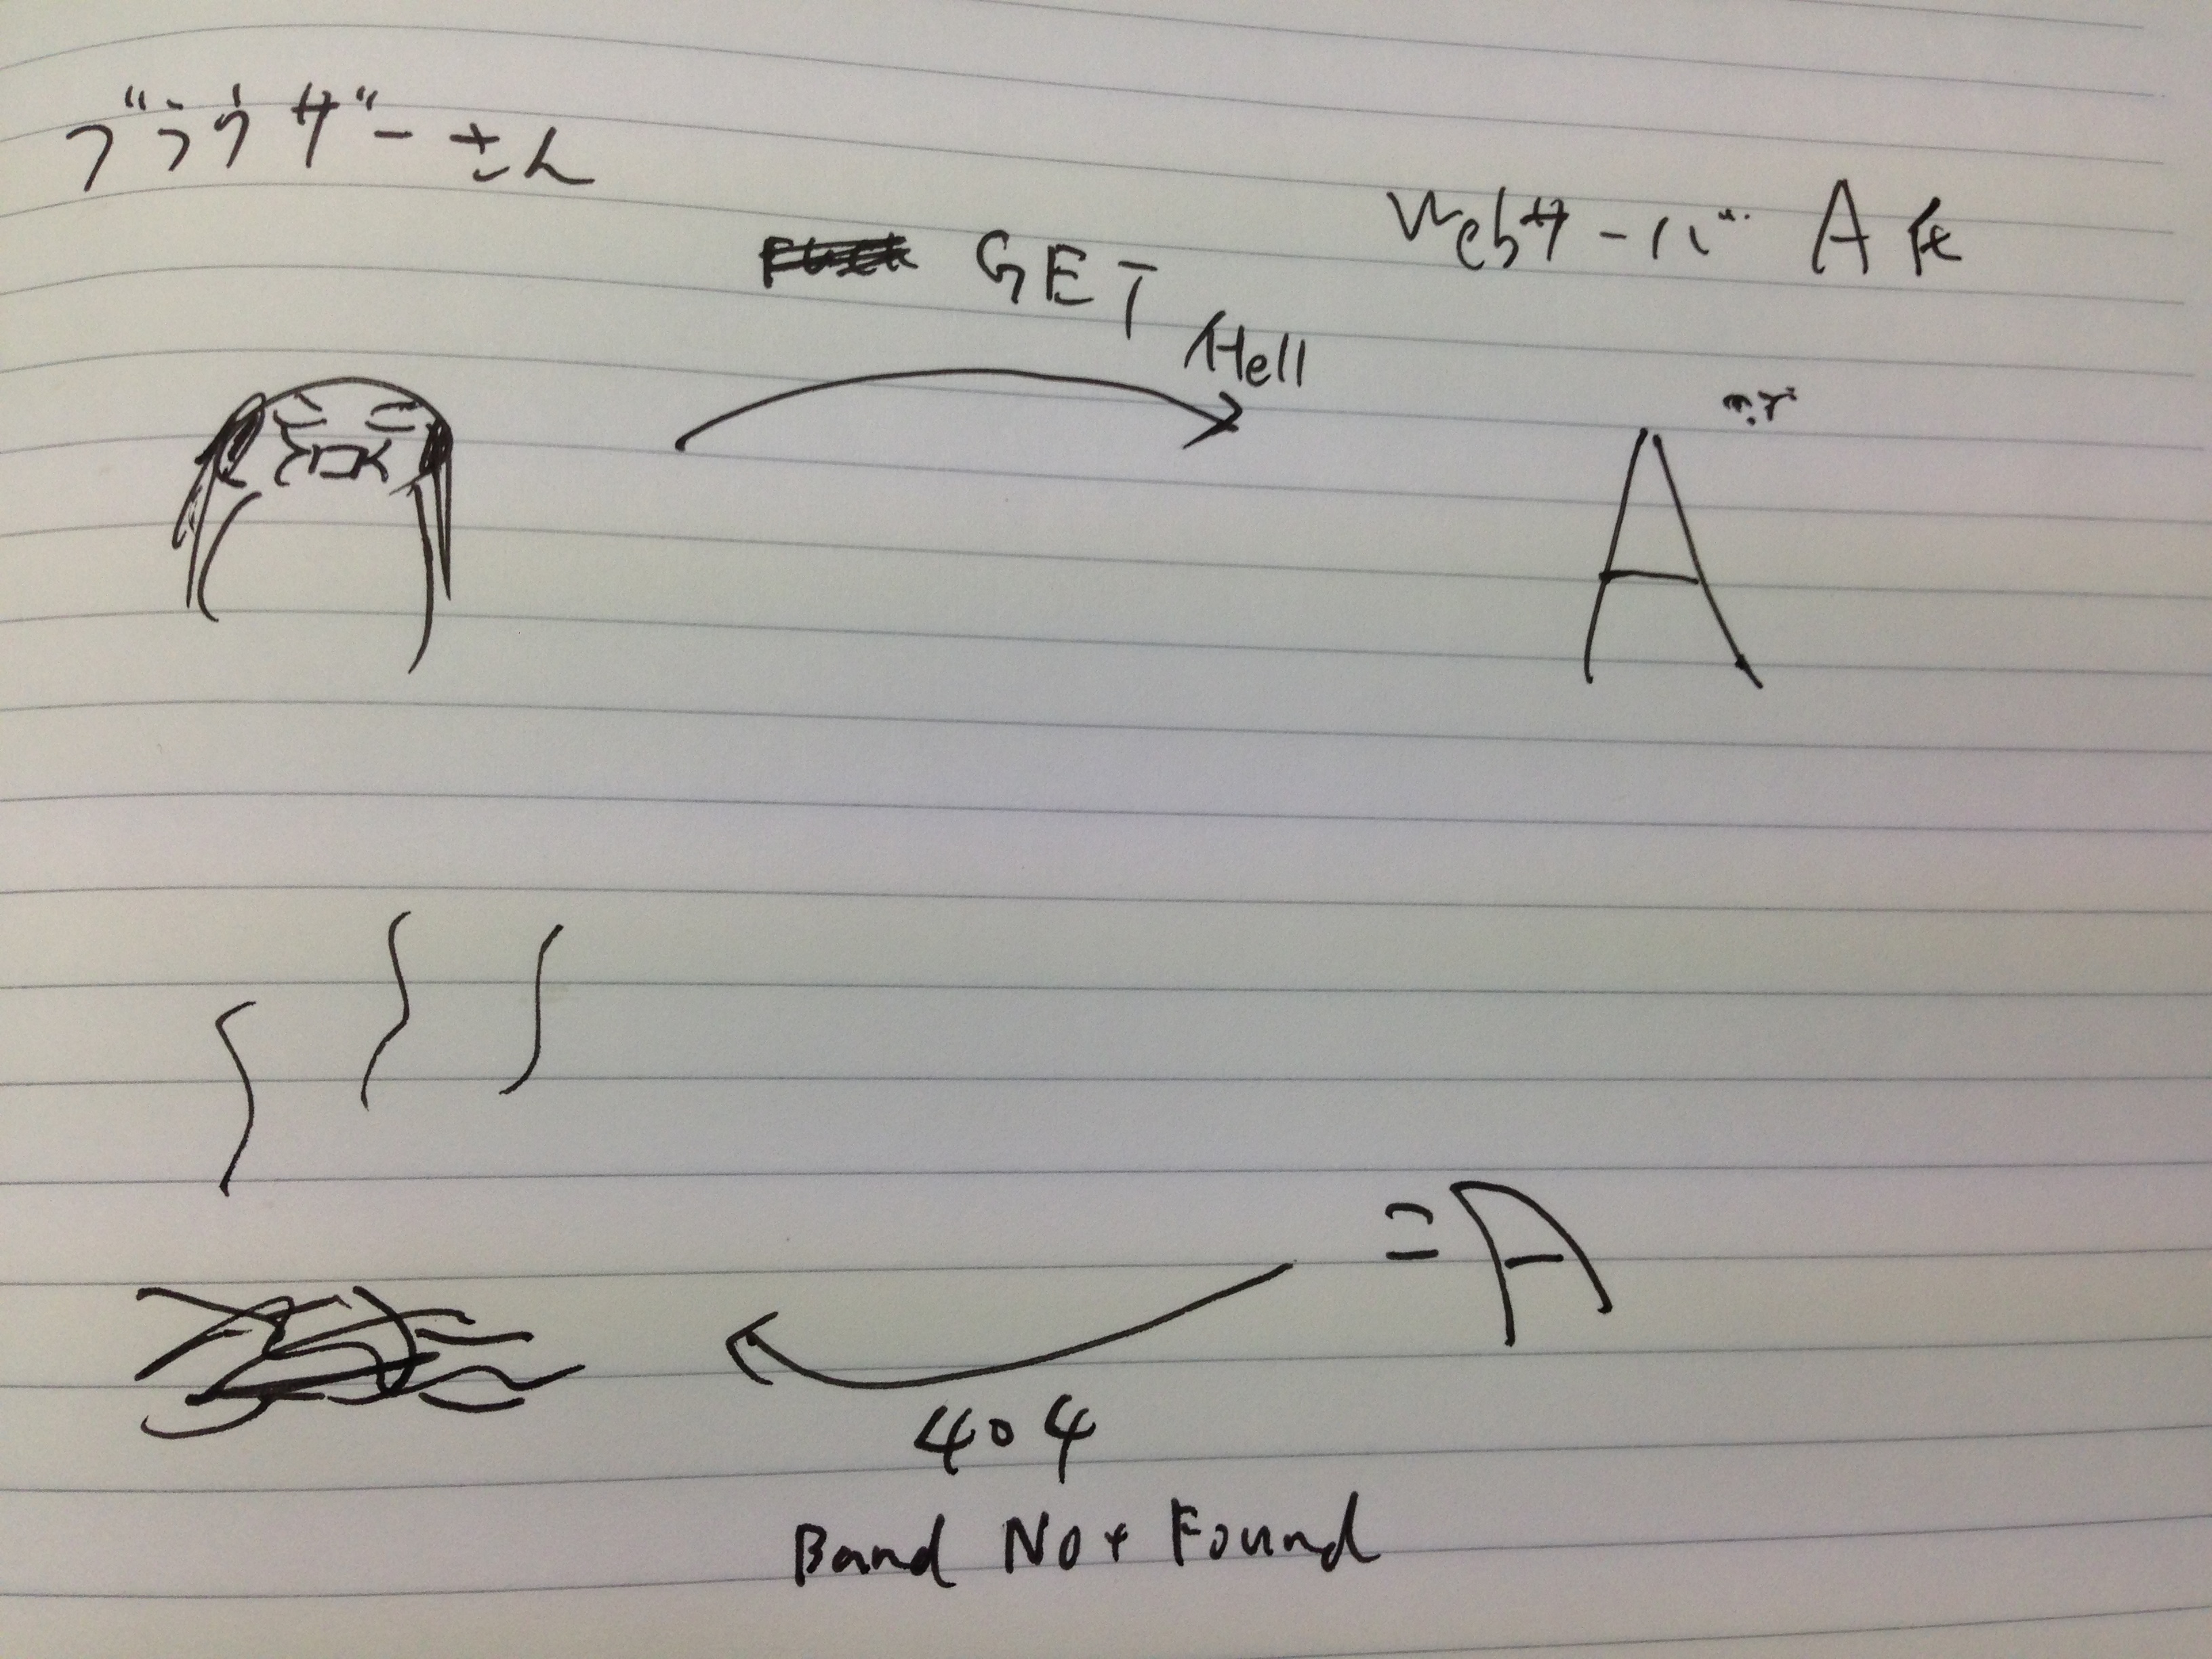 ブラウザーさん
Webサーバー A氏
GET
/Hell
A
A
404
Band Not Found